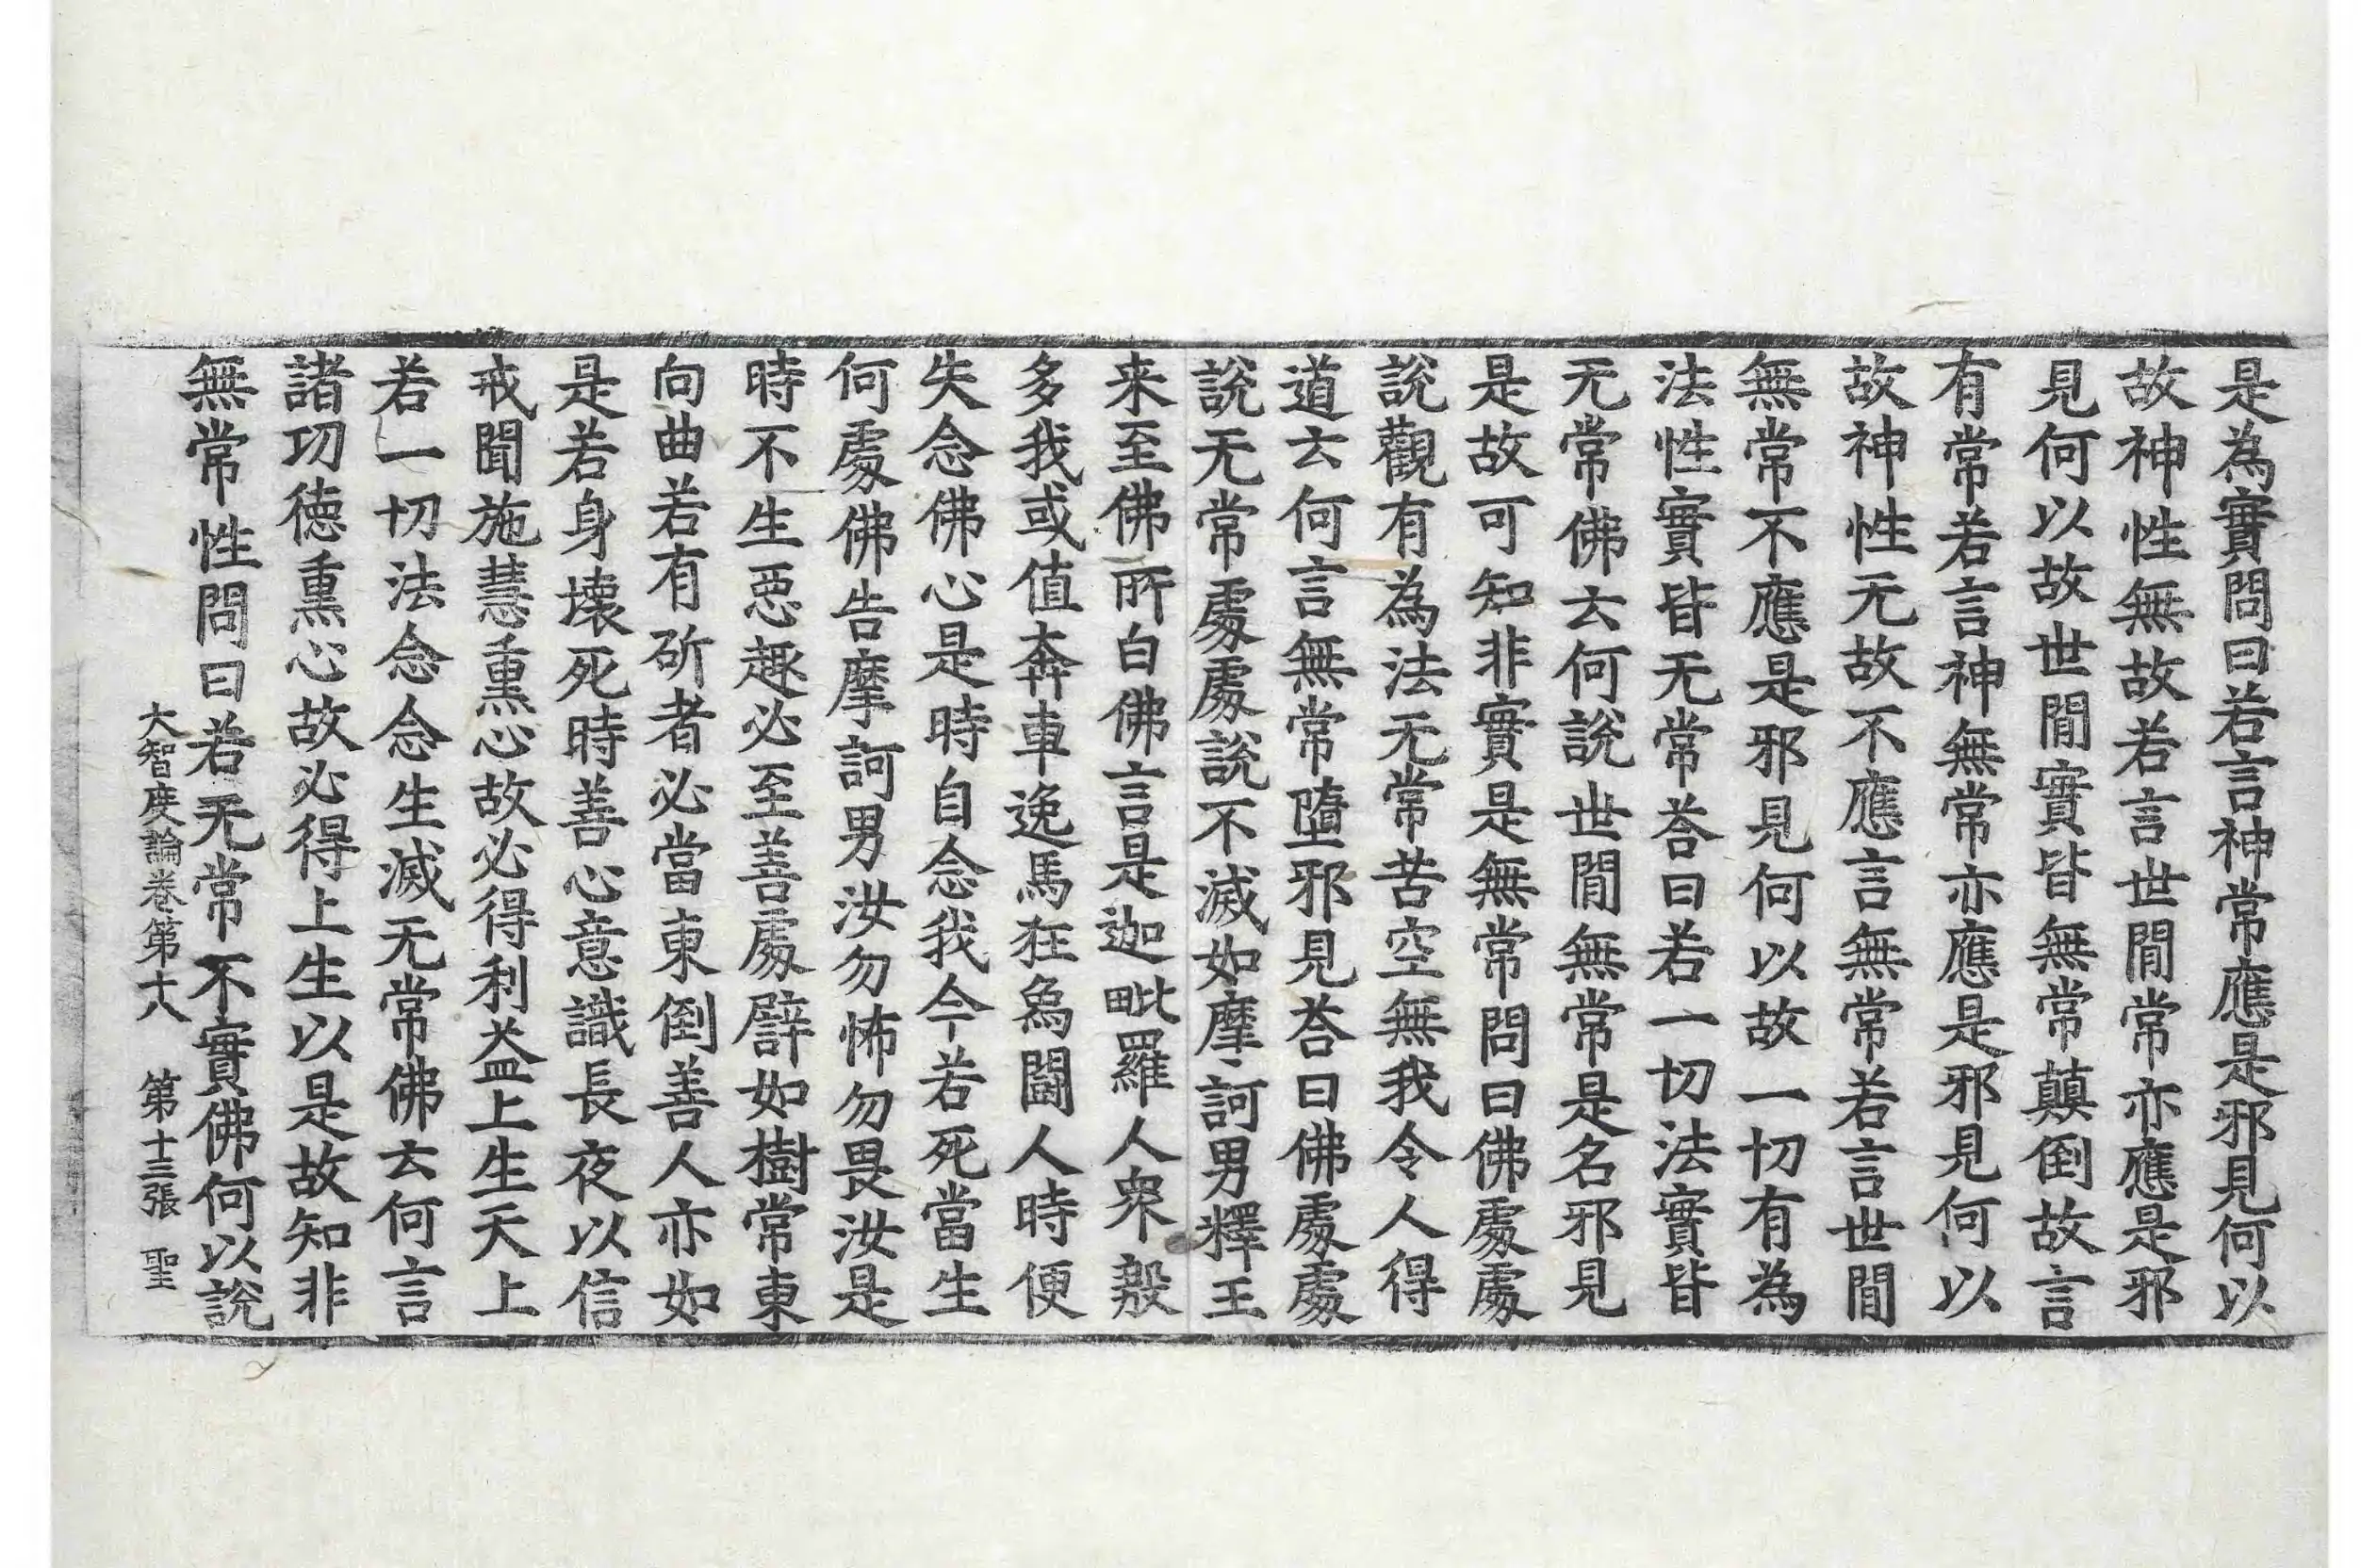 是為實問曰若言神常應是邪見何以
故神性無故若言世閒常亦應是邪
見何以故世閒實皆無常顛倒故言
有常若言神無常亦應是邪見何以
故神性无故不應言無常若言世閒
無常不應是邪見何以故一切有為
法性實皆无常荅曰若一切法實皆
无常佛云何說世閒無常是名邪見
是故可知非實是無常問曰佛處處
說觀有為法无常苦空無我令人得
道云何言無常墮邪見荅曰佛處處
說无常處處說不滅如摩訶男釋王
来至佛所白佛言是迦毗羅人衆殷
多我或值奔車逸馬狂象鬪人時便
失念佛心是時自念我今若死當生
何處佛告摩訶男汝勿怖勿畏汝是
時不生惡趣必至善處譬如樹常東
向曲若有斫者必當東倒善人亦如
是若身壞死時善心意識長夜以信
戒聞施慧熏心故必得利益上生天上
若一切法念念生滅无常佛云何言
諸功德熏心故必得上生以是故知非
無常性問曰若无常不實佛何以說
大智度論卷第十八　第十三張　聖